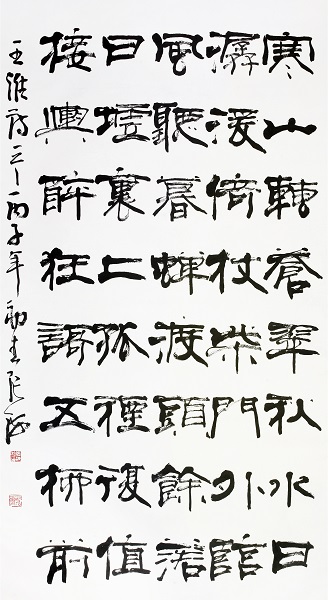 寒山轉蒼翠秋水日
潺湲倚杖柴門外臨
風聽暮蟬渡頭餘落
日墟裏上孤煙復值
接輿醉狂謌五柳前
王維詩之一丙子年初春張海